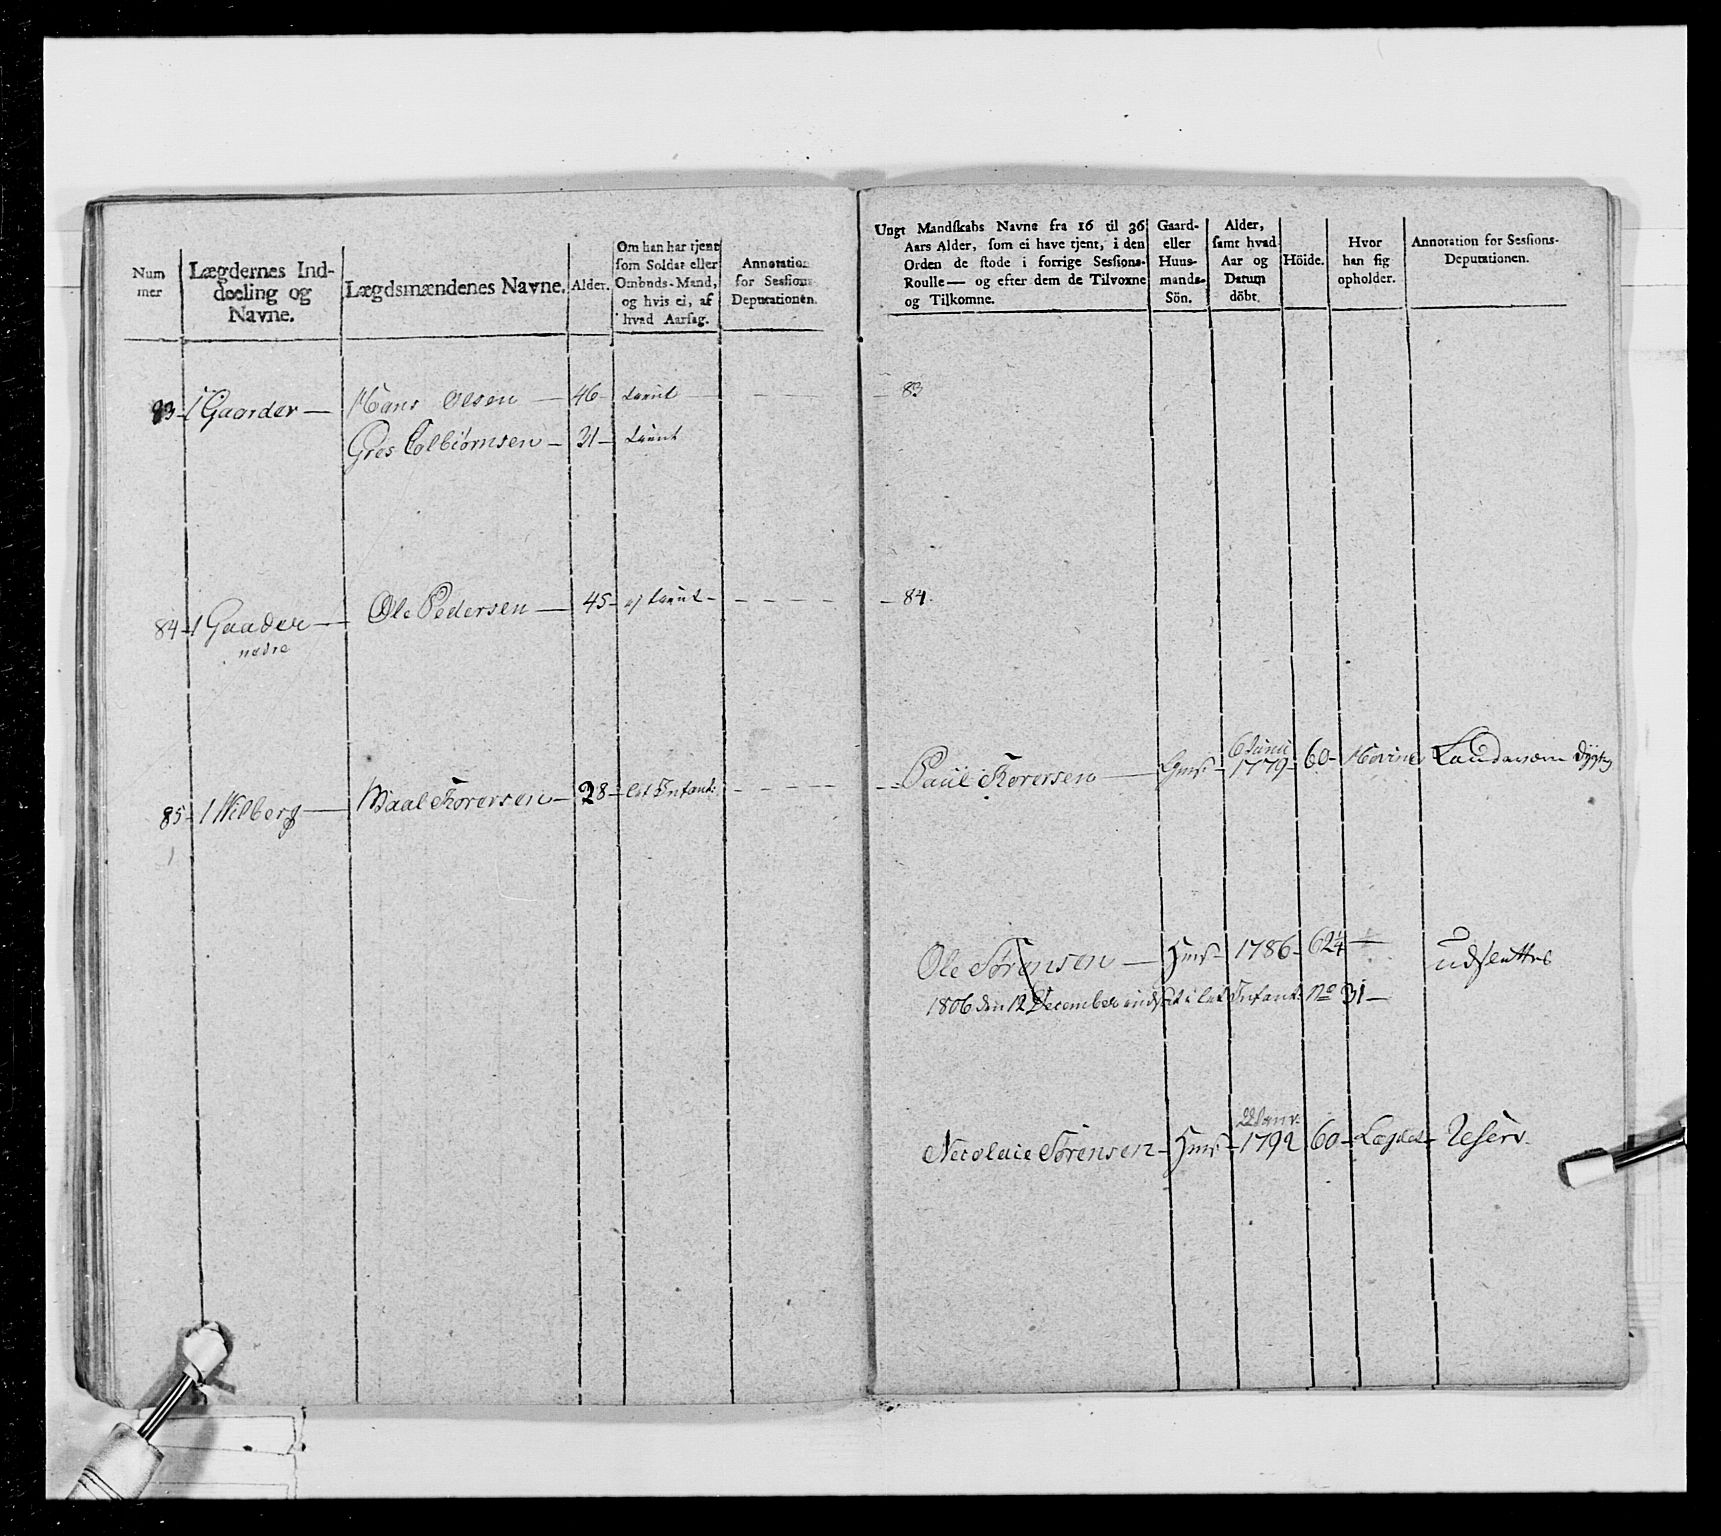 Num
mer
Lægdernes Ind-
deeling og
Navne.
Lægdsmændenes Navne.
Alder.
Om han har tjent
som Soldat eller
Ombuds-Mand,
og hvis ei, af
hvad Aarsag.
Annotation
for Sessions-
Deputationen.
83 - 1 Gaarder — Hans Olsen — 46 - tient
Gres Colbiørnsen - 31 - tient
84 - 1 Gaader — Ole Pedersen — 45 - ej tient -
nedre
85 - 1 Wilberg — Waal Torersen - 28 - let Infant:
Ungt Mandskabs Navne fra 16 til 36
Aars Alder, som ei have tjent, i den
Orden de stode i forrige Sessions-
Roulle — og efter dem de Tilvoxne
og Tilkomne.
Gaard-
eller
Huus-
mands-
Sön.
Alder,
samt hvad
Aar og
Datum
döbt.
Höide.
Hvor
han sig
opholder.
Annotation for Sessions-
Deputationen.
83
84.
6 Junii
Paul Torersen — 1779 - 60 - Landværn dygtig
Ole Sørensen — 1786 - 62¼ — udsættes
1806 den 12 December indsat i let Infant: No 31 —
Nicolaie Sørensen - 1792 60 - Lægdet - Reserv.